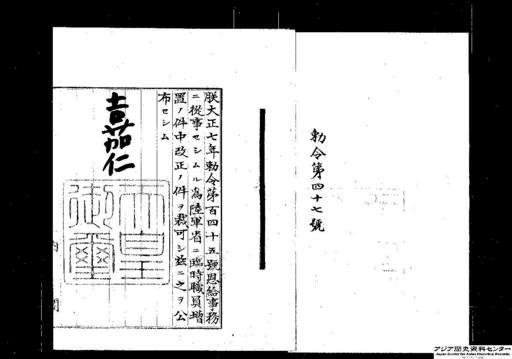 勅令第四十七號
朕大正七年勅令第百四十五號恩給事務
ニ從事セシムル爲陸軍省ニ臨時職員増
置ノ件中改正ノ件ヲ裁可シ茲ニ之ヲ公
布セシム
嘉仁
天皇
御璽
内閣
アジア歴史資料センター
Japan Center for Asian Historical Records